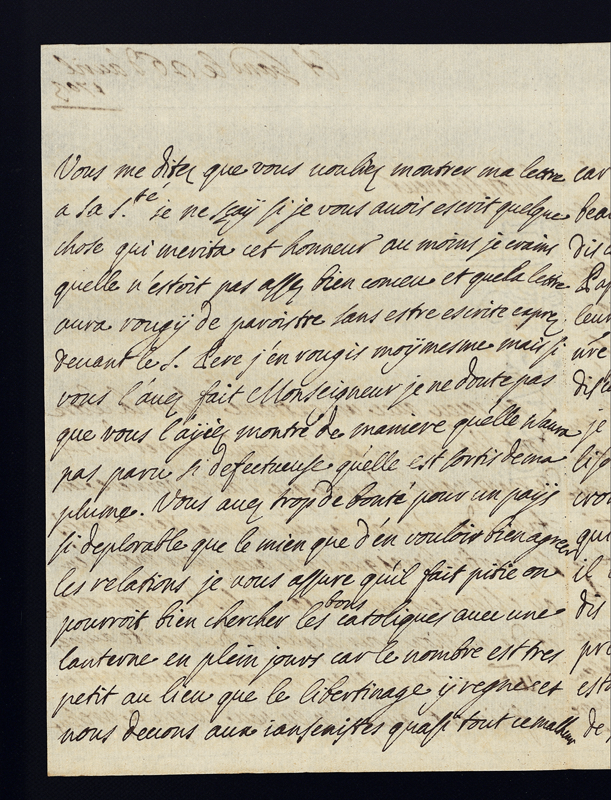 Vous me ditez que vous vouliez montrer ma lettre car
a Sa S.^té je ne sçaÿ si je vous auois escrit quelque beau
chose qui merita cet honneur au moins je crains
quelle n'estoit pas assez bien conceu et que la lettre
aura rougÿ de paroistre sans estre escrite exprez leur
deuant le S. Pere j'en rougis moÿmesme mais si
vous l'auez fait Monseigneur je ne doute pas
que vous l'aÿiez montré de maniere quelle n'aura je
pas paru si defectueuse qu'elle est sortis de ma
plume. Vous auez trop de bonté pour un païs
si deplorable que le mien que d'en vouloir bien agreer qui
les relations je vous assure qu'il fait pitie on il
pourroit bien chercher les bons catoliques auec une dis
lanterne en plein jours car le nombre est tres
petit au lieu que le libertinage ÿ regne et
nous deuons aux iansenistes quasi tout ce malheur de